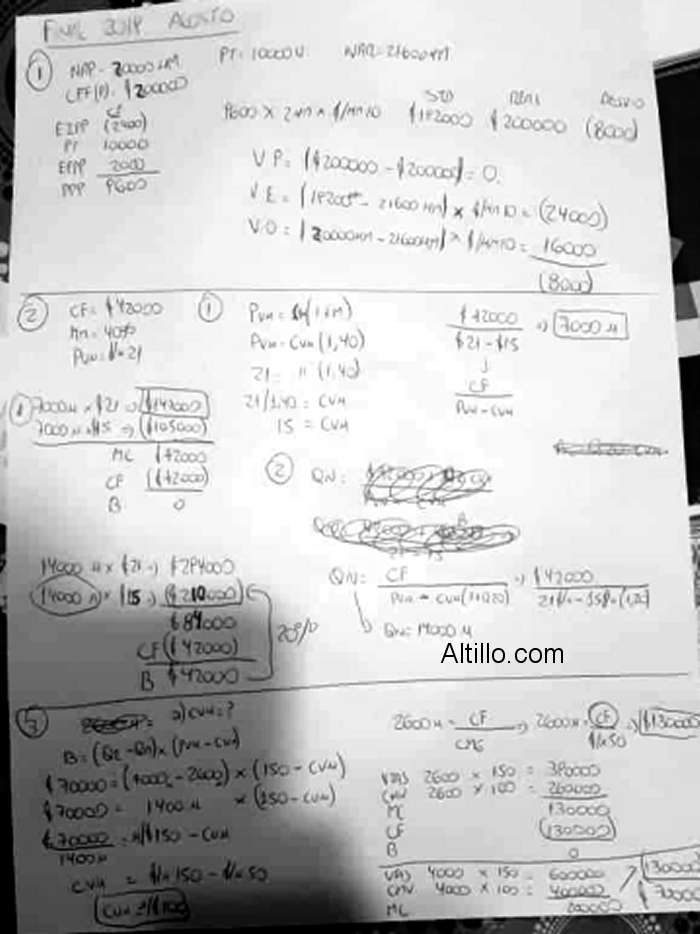 FINAL 2014 AGOSTO
① NAP = 20000 HM PT = 10000 U. NRQ = 21600 HM
CFF(P) = $200000
CF
EIPP (2400)
PT 10000
EFPP 2000
PPP 9600
STD REAL DESVIO
9600 x 2HM x $/HM10 $192000 $200000 (8000)
VP = ($200000 - $200000) = 0.
VE = (19200 - 21600 HM) x $/HM10 = (24000)
VO = (20000HM - 21600HM) x $/HM10 = 16000
(8000)
② CF = $42000
Mn = 40%
PVU = $/U 21
①
PVU = CVU (1,40)
21 = " (1,40)
21/1,40 = CVU
15 = CVU
$42000
$21 - $15
=) 7000 U
CF
PVU - CVU
① 7000 U x $21 =) $147000
7000 U x $15 =) ($105000)
MC $42000
CF ($42000)
B 0
② QN:
14000 U x $21 =) $294000
14000 U x $15 =) ($210000)
$84000
CF ($42000)
B $42000
20%
QN = CF
PVU - CVU (1+0,20)
=) $42000
QN = 14000 U
Altillo.com
5 a) CVU = ?
B = (QE - QN) x (PVU - CVU)
$70000 = (4000 - 2600) x (150 - CVU)
$70000 = 1400 U x (150 - CVU)
$70000
1400 U
= $150 - CVU
CVU = $/U 150 - $/U 50
CVU = $/U 100
2600 U = CF
CMG
=) 2600 U = CF
$/U 50
=) $130000
VTAS 2600 x 150 = 390000
CMV 2600 x 100 = 260000
MC 130000
CF (130000)
B 0
VTAS 4000 x 150 = 600000
CMV 4000 x 100 = 400000
MC 200000